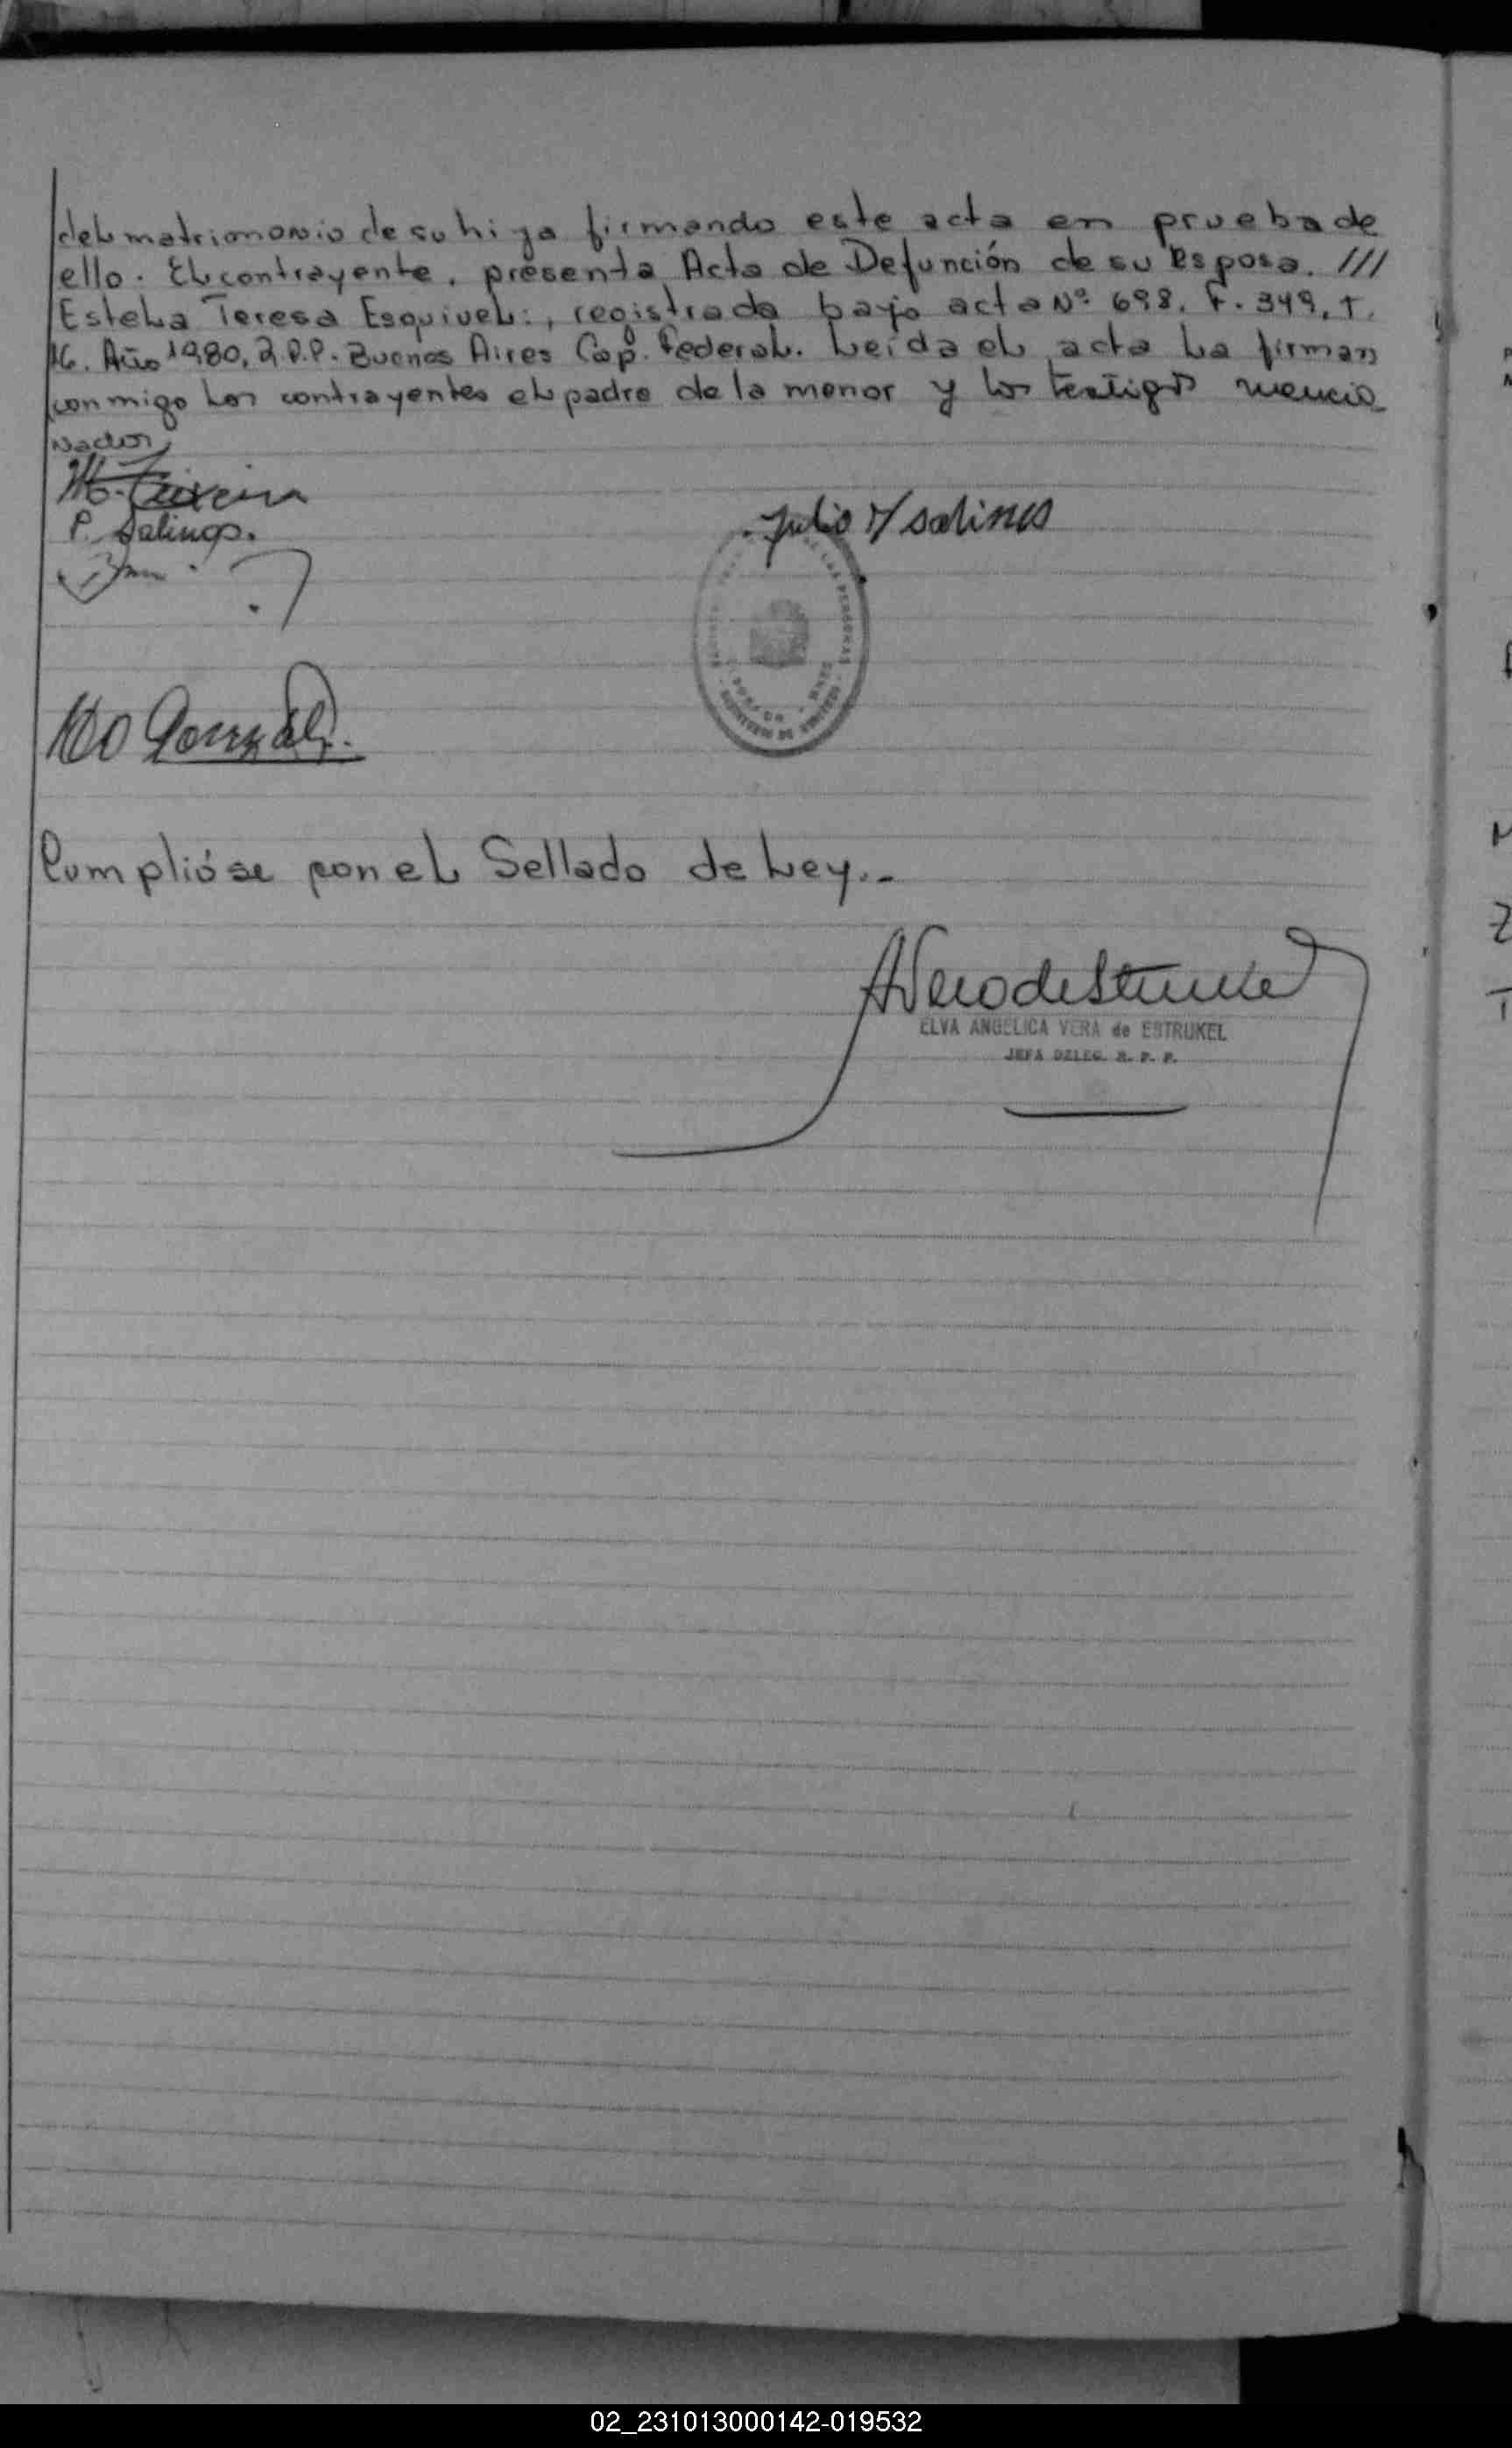 del matrimonio de su hija firmando este acta en prueba de
ello. El contrayente, presenta Acta de Defunción de su esposa. ///
Estela Teresa Esquivel:, registrada bajo acta Nº 698. F. 349, T.
16. Año 1980, R.P.P. Buenos Aires Cap. Federal. Leída el acta la firman
conmigo los contrayentes el padre de la menor y los testigos mencio
nados,
M. Teixeira
P. Salinas.
Julio Y Salinas
PERSONAS
Gonzalez.
Cumplióse con el Sellado de Ley.-
AVera de Estrukel
ELVA ANGELICA VERA de ESTRUKEL
JEFA DELEG. R. P. P.
02_231013000142-019532